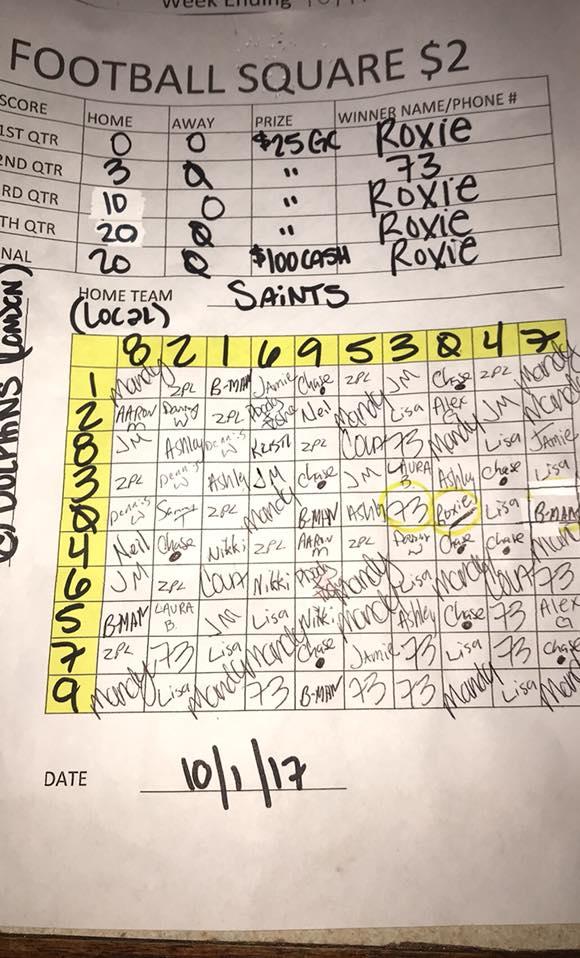 Week Ending
FOOTBALL SQUARE $2
SCORE HOME AWAY PRIZE WINNER NAME/PHONE #
1ST QTR 0 0 $25 GC Roxie
2ND QTR 3 0 " 73
RD QTR 10 0 " Roxie
TH QTR 20 0 " Roxie
NAL 20 0 $100 CASH Roxie
HOME TEAM SAINTS
(LOCAL)
DOLPHINS (LONDON)
8 2 1 6 9 5 3 0 4 7
1 Mandy ZPL B-MAN Jamie Chase ZPL JM Chase ZPL Mandy
2 AARON M Danny W ZPL Neil Mandy Lisa Alex G JM Mandy
8 JM Ashley Dennis W KRISTL ZPL 73 Mandy Lisa Jamie
3 ZPL Dennis W Ashley JM Chase JM LAURA B Ashley Chase Lisa
0 Dennis W ZPL Mandy B-MAN Ashley 73 Roxie Lisa B-MAN
4 Neil Chase Nikki ZPL AARON M ZPL Danny W Chase Chase Man
6 JM ZPL Nikki Mandy Lisa Mandy 73
5 B-MAN LAURA B JM Lisa Nikki Mandy Ashley Chase 73 Alex G
7 ZPL 73 Lisa Mandy Chase Jamie 73 Lisa 73 Chase
9 Mandy Lisa Mandy 73 B-MAN 73 73 Mandy Lisa Man
DATE 10/1/17